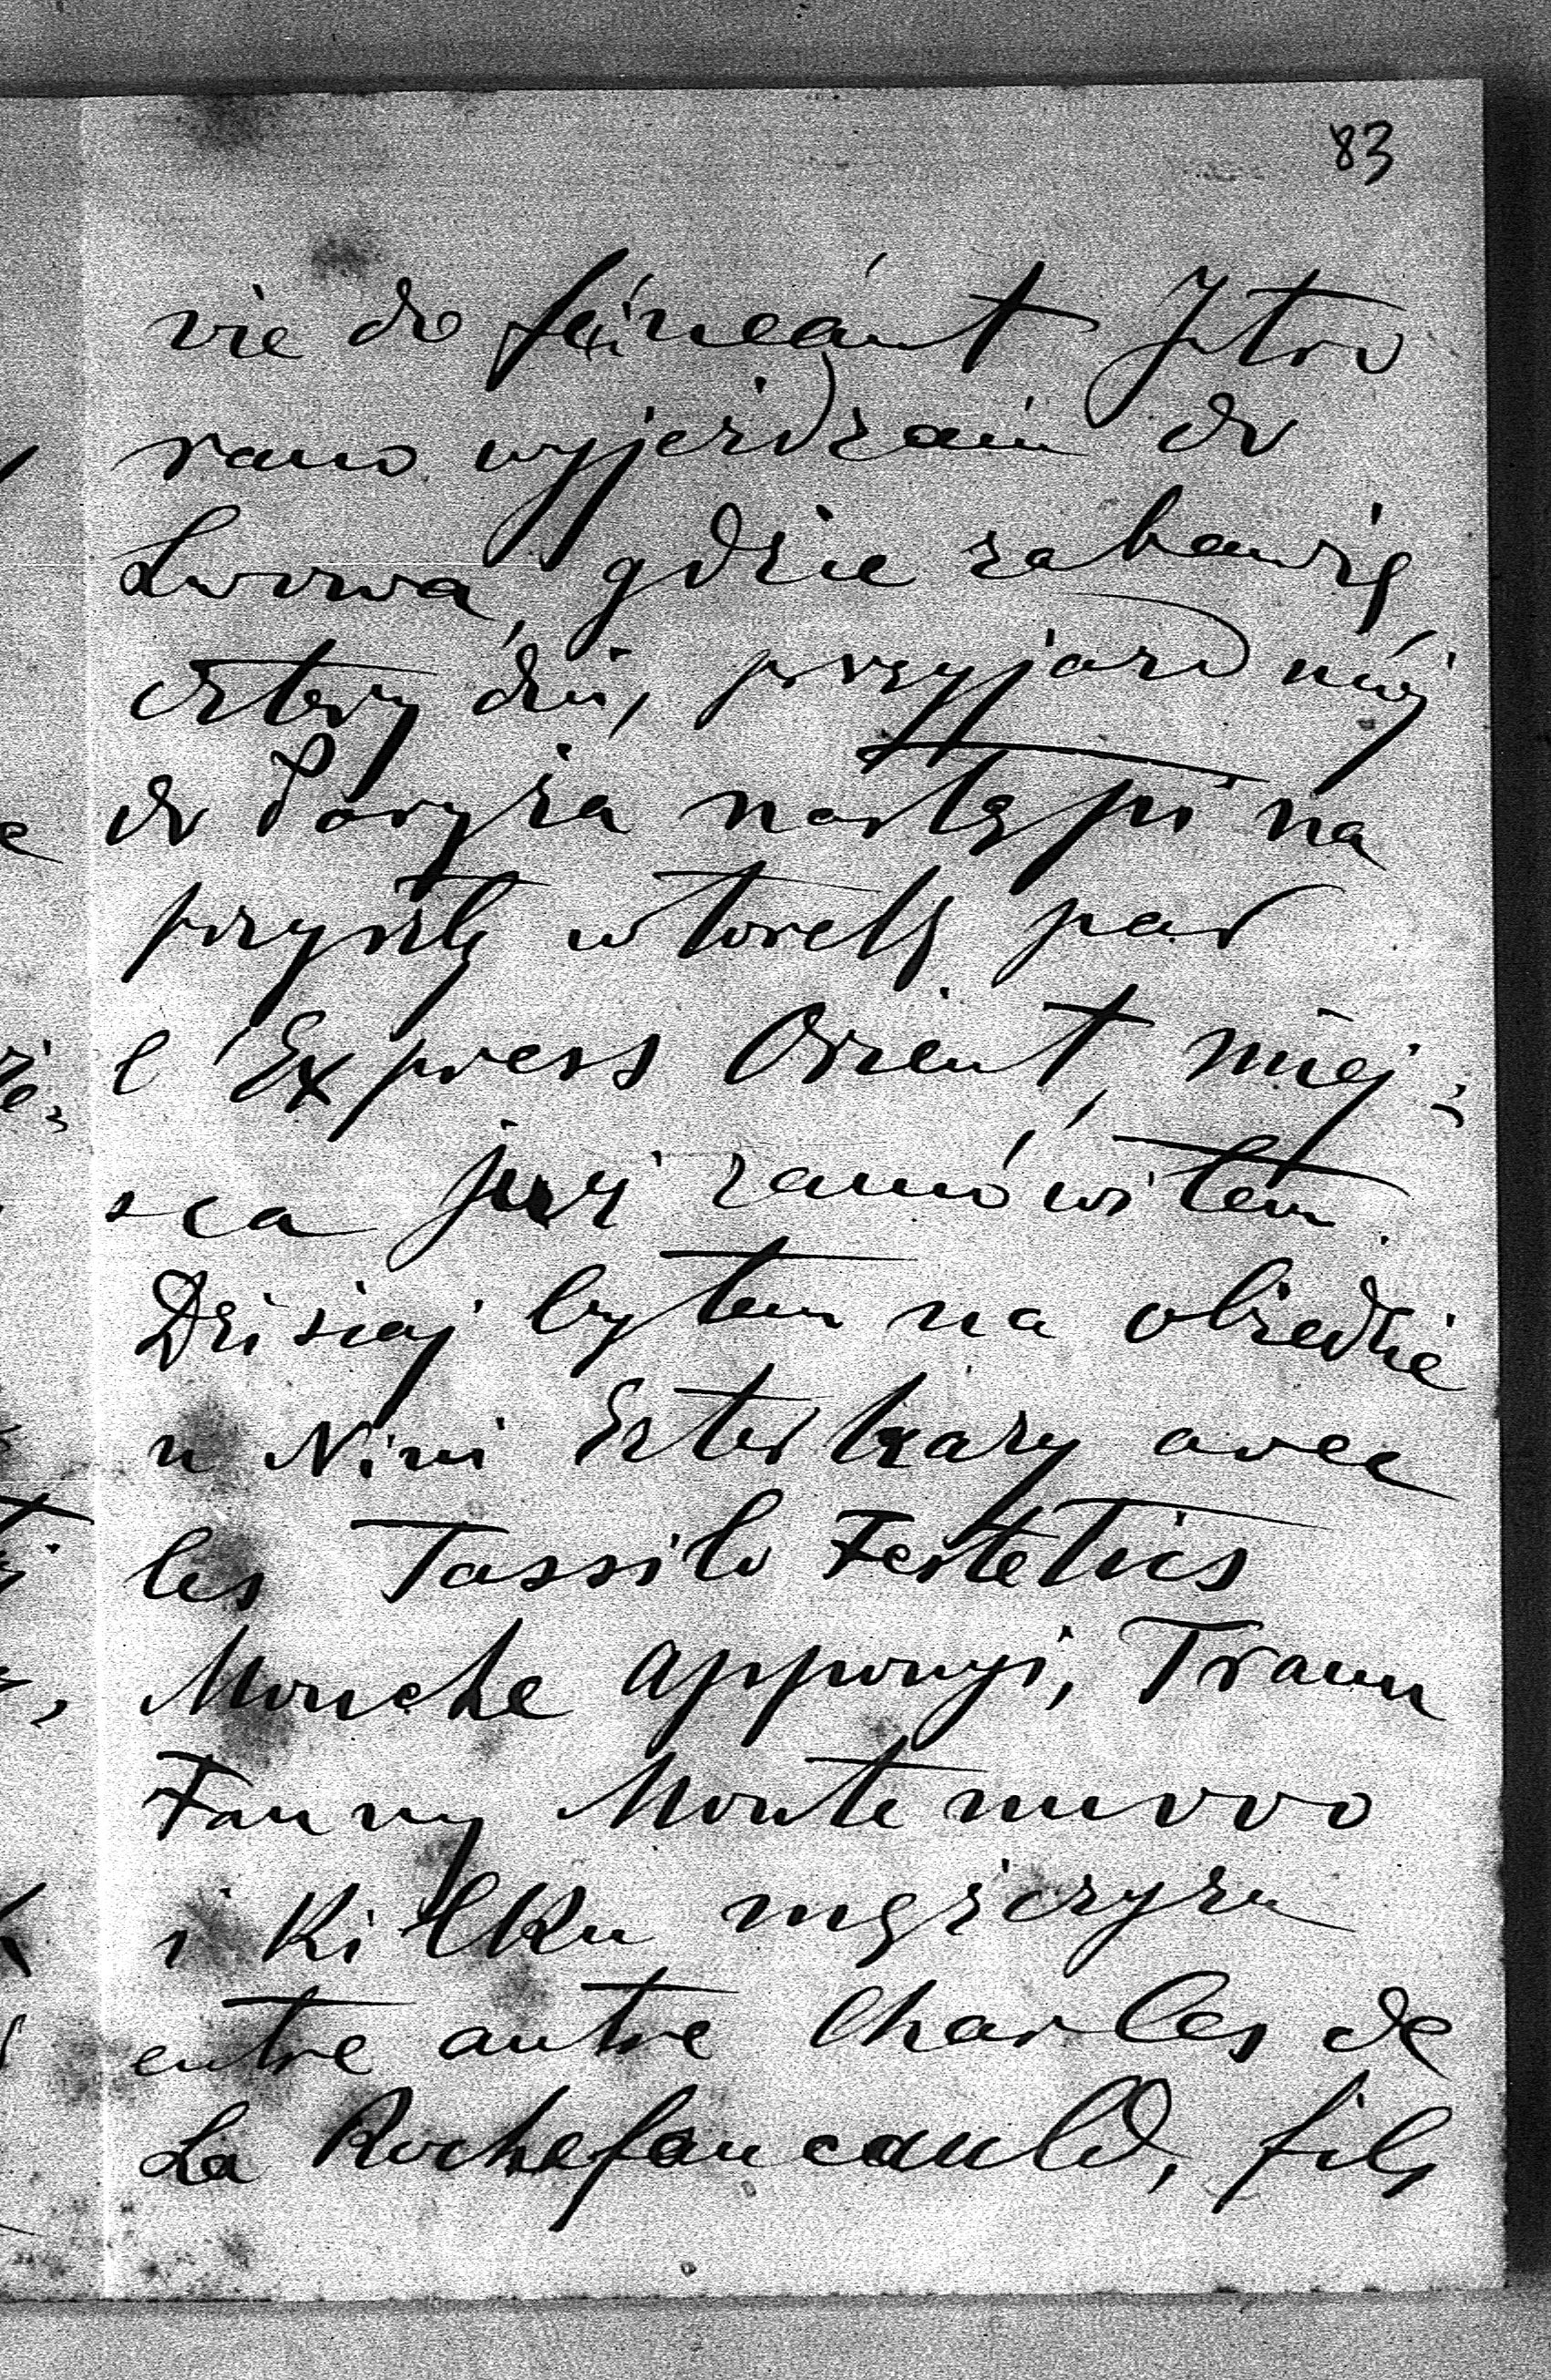 83
vie de féinéant Jutro
rano wyjeżdżam do
Lwowa, gdzie zabawię
cztery dni, przyjazd mój
do Paryża nastąpi na
przyszły wtorek, par
l'Express Orient, miej-
sca już zamówiłem.
Dzisiaj byłem na obiedzie
u Nini Esterhazy avec
les Tassilo Festetics
Mouche Apponyi, Traun
Fanny Montenuovo
i kilku mężczyzn
entre autre Charles de
La Rochefoucauld, fils